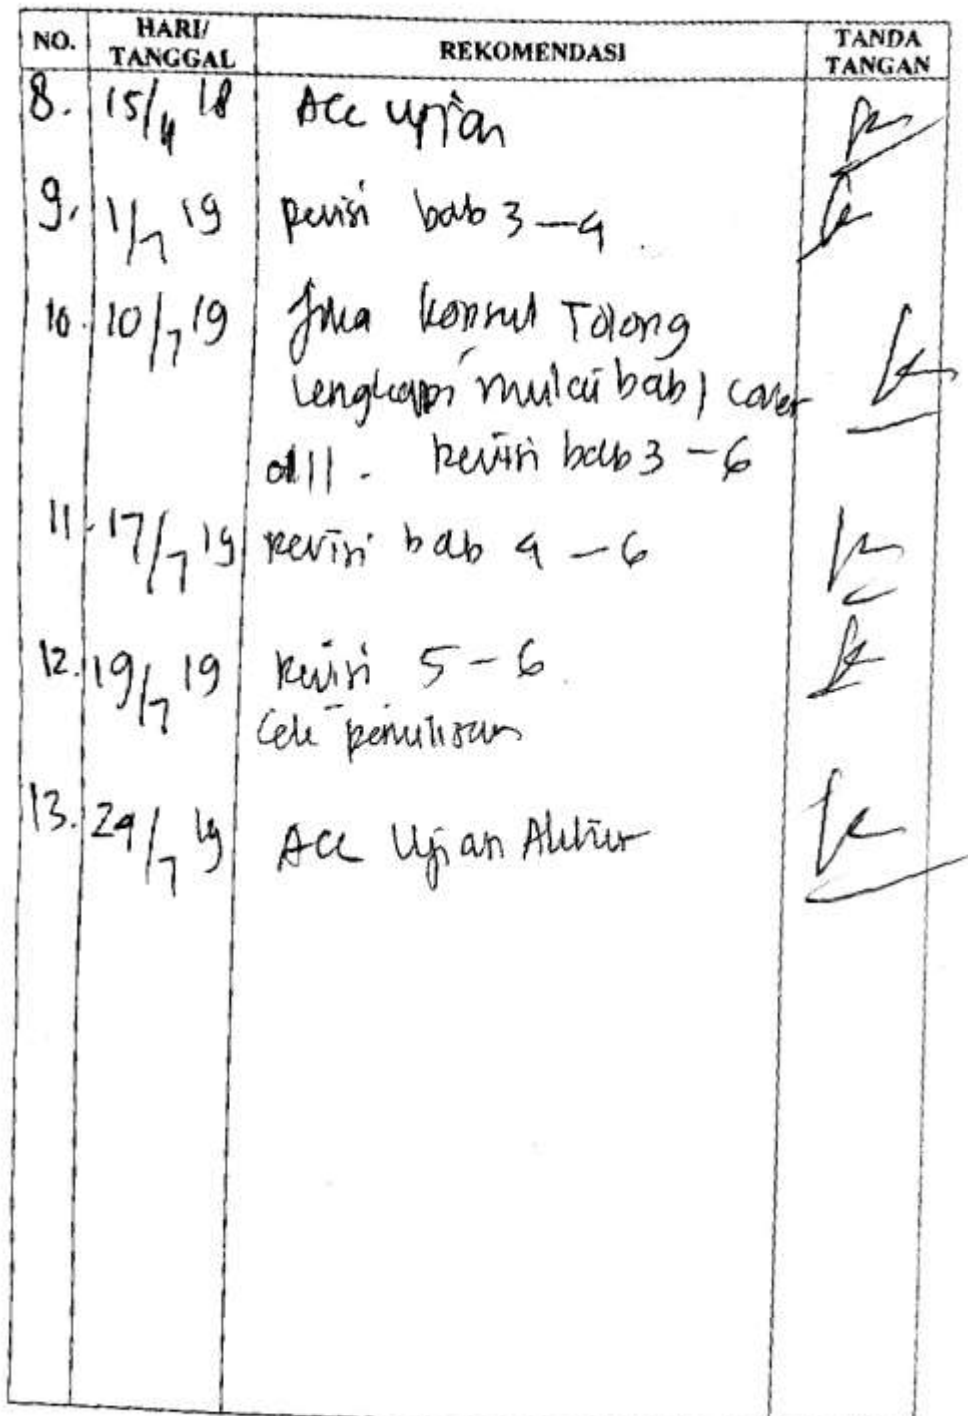 NO. HARI/ TANGGAL REKOMENDASI TANDA TANGAN
8. 15/4 18 Acc Ujian
9. 1/7 19 Revisi bab 3-4
10. 10/7 19 Jika konsul Tolong
lengkapi mulai bab 1 cover
dll. Revisi bab 3-6
11. 17/7 19 Revisi bab 4-6
12. 19/7 19 Revisi 5-6
Cek penulisan
13. 24/7 19 Acc Ujian Akhir